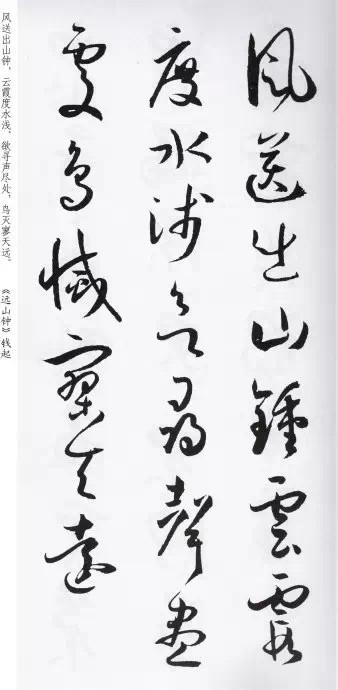 风送出山钟，云霞度水浅。欲寻声尽处，鸟灭寥天远。 《远山钟》钱起
風送出山鍾雲霞
度水浅欲尋聲盡
處鳥滅寥天遠